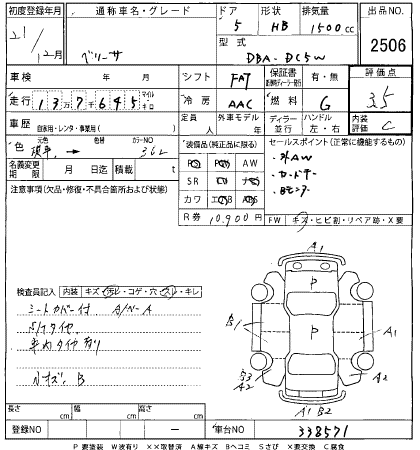 初度登録年月 通称車名・グレード ドア 形状 排気量 出品NO
21/12月 ベリーサ 5 HB 1500cc 2506
型式
DBA-DC5W
車検 年 月 シフト FAT 保証書 有・無 評価点
走行 137645 マイル キロ 冷房 AAC 燃料 G 3.5
車歴 自家用・レンタ・事業用( ) 定員 人 外車モデル 年 ディーラー 並行 ハンドル 左・右 内装評価 C
色 元色 → 色替 カラーNO 36L
装備品(純正品に限る) セールスポイント(正常に機能するもの)
PS PW AW ・外AW
名義変更 月 日迄 積載 t SR ナビ ・カードキー
注意事項(欠品・修復・不具合箇所および状態) カワ エアB ABS
R券 10,900円 FW キズ・ヒビ割・リペア跡・X要
A1
検査員記入 内装 キズ・汚レ・コゲ・穴・スレ・キレ
シートカバー付 A/ペーA
P
B1 A1
車内タイヤ有り
P
小キズ、B
B3 A2 A2
A1 B2
長さ cm 幅 cm 高さ cm
登録NO ー 車台NO 338571
P要塗装 W波有り ××取替済 A線キズ Bヘコミ Sさび ×要交換 C腐食